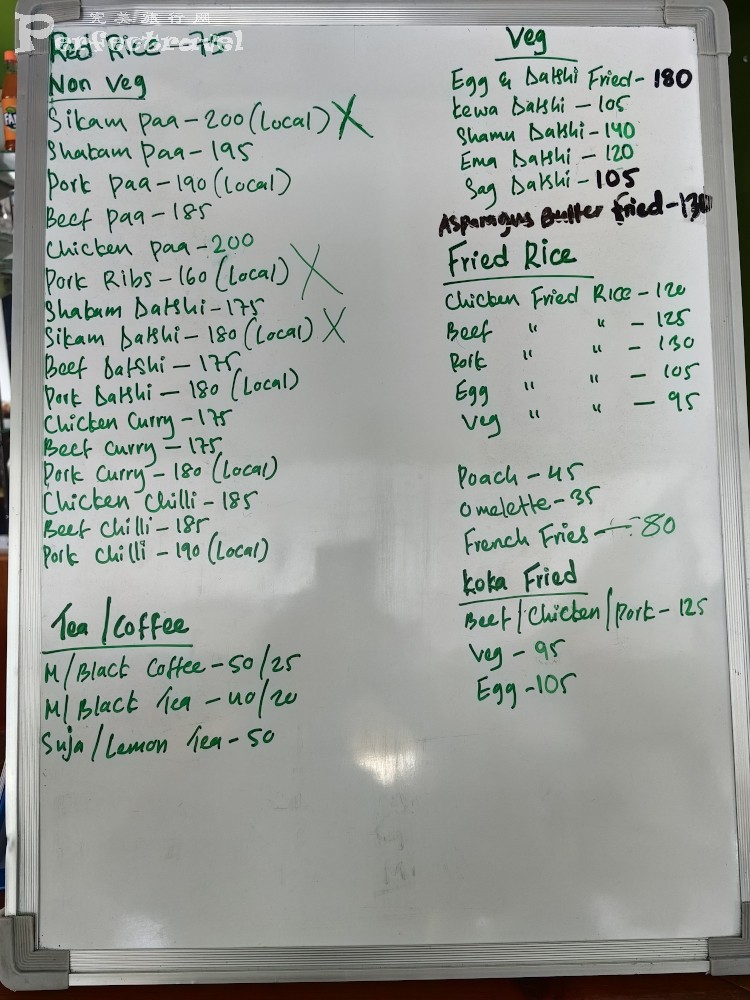 完美旅行网
Perfectravel
Red Rice - 75
Non Veg
Sikam paa - 200 (Local) X
Shakam paa - 195
Pork paa - 190 (Local)
Beef paa - 185
Chicken paa - 200
Pork Ribs - 160 (Local) X
Shakam Datshi - 175
Sikam Datshi - 180 (Local) X
Beef Datshi - 175
Pork Datshi - 180 (Local)
Chicken Curry - 175
Beef Curry - 175
Pork Curry - 180 (Local)
Chicken Chilli - 185
Beef Chilli - 185
Pork Chilli - 190 (Local)
Tea / Coffee
M/Black Coffee - 50/25
M/Black Tea - 40/20
Suja/Lemon Tea - 50
Veg
Egg & Datshi Fried - 180
Kewa Datshi - 105
Shamu Datshi - 140
Ema Datshi - 120
Sag Datshi - 105
Asparagus Butter Fried - 130
Fried Rice
Chicken Fried Rice - 120
Beef " " - 125
Pork " " - 130
Egg " " - 105
Veg " " - 95
Poach - 45
Omelette - 35
French Fries - 80
Koka Fried
Beef/Chicken/Pork - 125
Veg - 95
Egg - 105